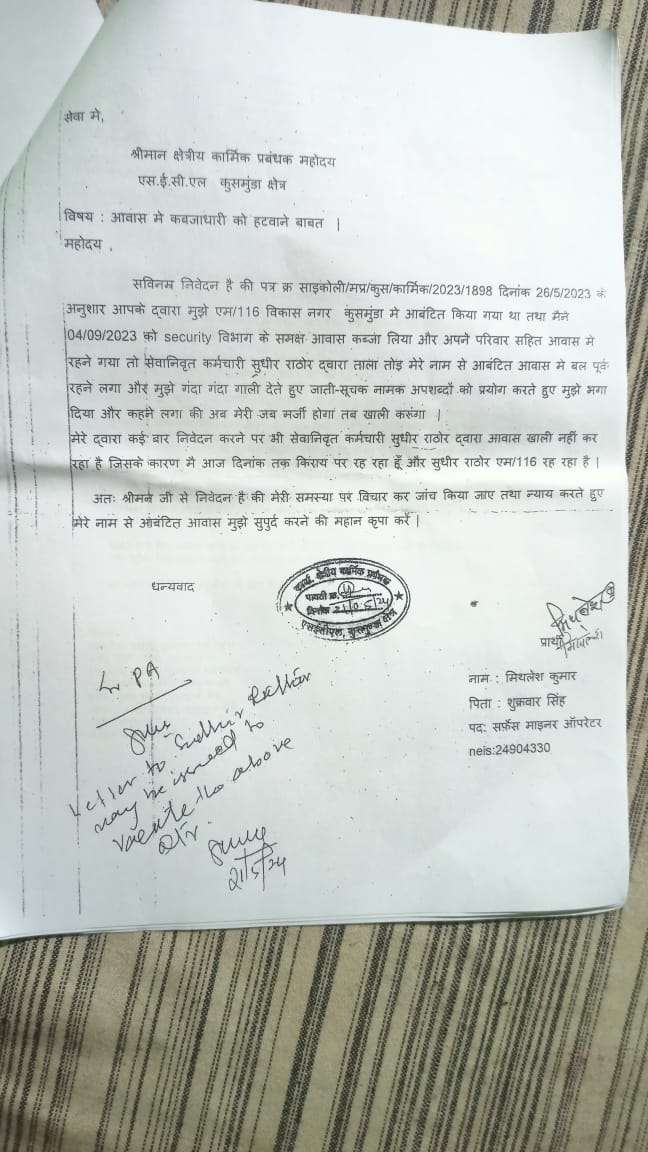 सेवा मे,
श्रीमान क्षेत्रीय कार्मिक प्रबंधक महोदय
एस.ई.सी.एल कुसमुंडा क्षेत्र
विषय : आवास मे कबजाधारी को हटवाने बाबत |
महोदय ,
सविनम्र निवेदन है की पत्र क्र साइकोली/मप्र/कुस/कार्मिक/2023/1898 दिनांक 26/5/2023 के
अनुशार आपके द्वारा मुझे एम/116 विकास नगर कुंसमुंडा मे आबंटित किया गया था तथा मैने
04/09/2023 को security विभाग के समक्ष आवास कब्जा लिया और अपने परिवार सहित आवास मे
रहने गया तो सेवानिवृत कर्मचारी सुधीर राठोर द्वारा ताला तोड़ मेरे नाम से आबंटित आवास मे बल पूर्व
रहने लगा और मुझे गंदा गंदा गाली देते हुए जाती-सूचक नामक अपशब्दों को प्रयोग करते हुए मुझे भगा
दिया और कहने लगा की अब मेरी जब मर्जी होगा तब खाली करूंगा |
मेरे द्वारा कई बार निवेदन करने पर भी सेवानिवृत कर्मचारी सुधीर राठोर द्वारा आवास खाली नहीं कर
रहा है जिसके कारण मै आज दिनांक तक किराय पर रह रहा हूँ और सुधीर राठोर एम/116 रह रहा है |
अतः श्रीमन जी से निवेदन है की मेरी समस्या पर विचार कर जांच किया जाए तथा न्याय करते हुए
मेरे नाम से आबंटित आवास मुझे सुपुर्द करने की महान कृपा करें |
धन्यवाद
क्षेत्रीय कार्मिक प्रबंधक
दिनांक 21/05/24
एसईसीएल, कुसमुण्डा क्षेत्र
प्रार्थी
नाम : मिथलेश कुमार
पिता : शुक्रवार सिंह
पद: सर्फ़ेस माइनर ऑपरेटर
neis:24904330
PA
Letter to Sudhir Rathor
may be issued to
vacate the above
Qtr.
21/5/24